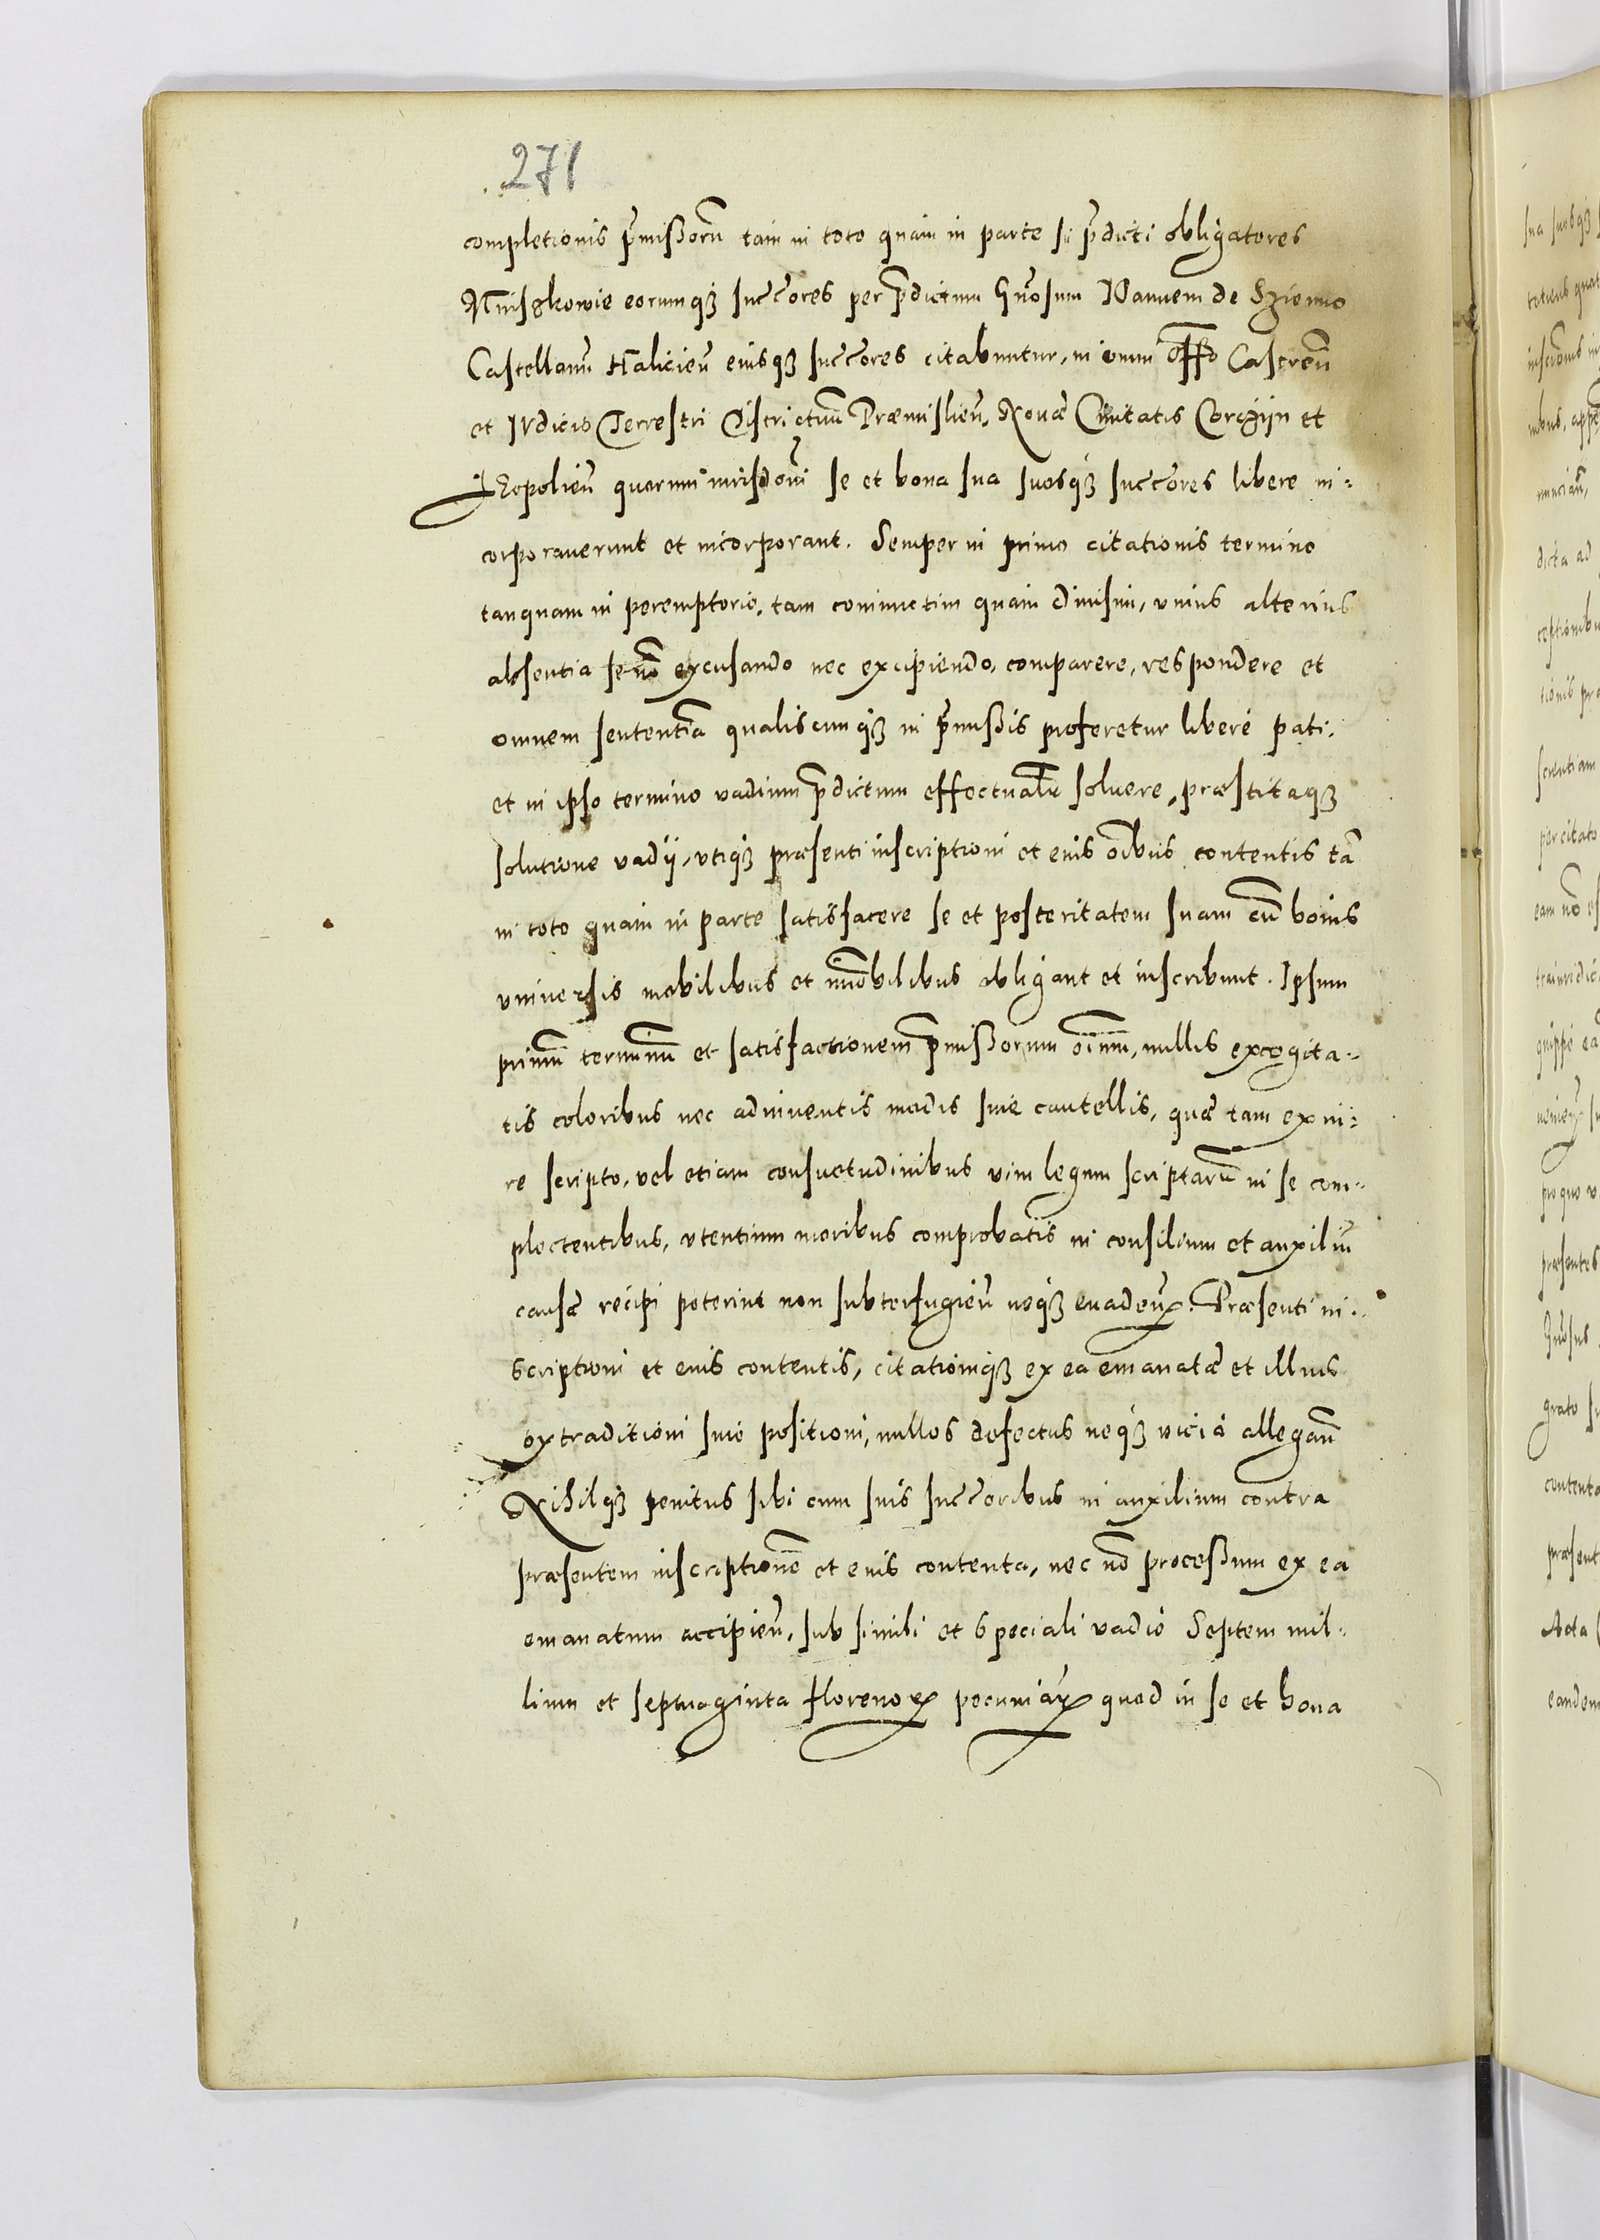 271
completionis p̃missorũ tam in toto quam in parte si p̃dicti obligatores
Mniszkowie eorumq₃ succ̃ores per p̃dictum Gñosum Joannem de Szienno
Castellanũ Halicieñ eiusq₃ succ̃ores citabuntur, in omni off̃o Castreñ
et Judicio Terrestri Districtuũ Præmislieñ, Nouæ Ciuitatis Corczijn et
Leopolieñ quorum iurisd̃oni se et bona sua suosq₃ succ̃ores libere in:
corporauerunt et incorporant. Semper in primo citationis termino
tanquam in peremptorio, tam coniunctim quam diuisim, vnius alterius
absentia se nõ excusando nec excipiendo, comparere, respondere et
omnem sententiã qualiscumq₃ in p̃missis proferetur liberè pati,
et in ipso termino vadium p̃dictum effectualr̃ soluere, præstitaq₃
solutione vadij, vtiq₃ præsenti inscriptioni et eius oĩbus contentis tã
in toto quam in parte satisfacere se et posteritatem suam cũ bonis
vniuersis mobilibus et im̃obilibus obligant et inscribunt. Ipsum
primũ terminũ et satisfactionem p̃missorum oĩum, nullis excogita-
tis coloribus nec adinuentis modis siue cautellis, quæ tam ex iu:
re scripto, vel etiam consuetudinibus vim legum scriptarũ in se com-
plectentibus, vtentium moribus comprobatis in consilium et auxiliũ
causæ recipi poterint non subterfugieñ neq₃ euadeñ. Præsenti in-
scriptioni et eius contentis, citationiq₃ ex ea emanatæ et illius
extraditioni siue positioni, nullos defectus neq₃ vicia allegañ
Nihilq₃ penitus sibi cum suis succ̃oribus in auxilium contra
præsentem inscriptionẽ et eius contenta, nec nõ processum ex ea
emanatum accipieñ, sub simili et speciali vadio Septem mil-
lium et septuaginta florenoꝝ pecuniaꝝ quod in se et bona